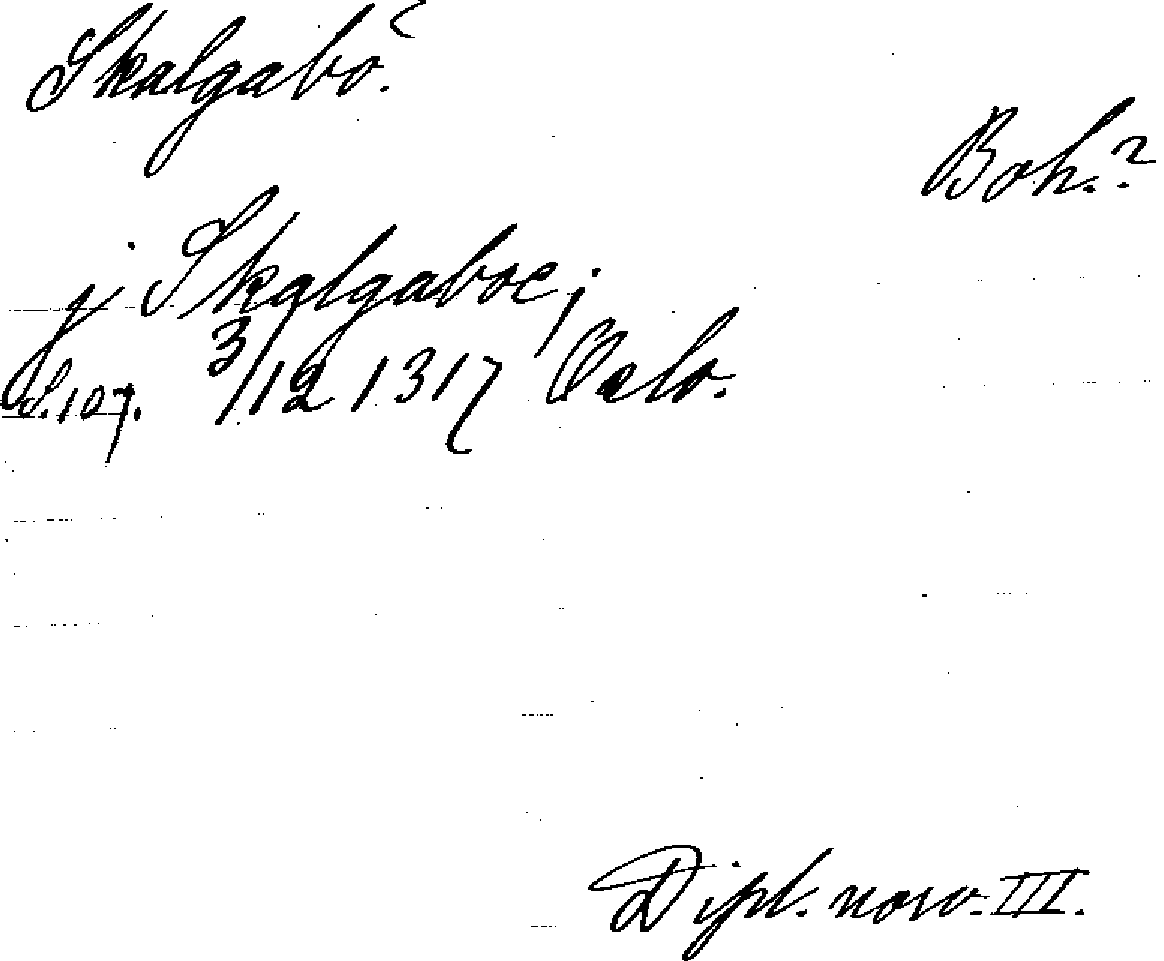 Skalgabo?
Boh.?
j Skalgaboe;
S. 107. 3/12 1317 Oslo.
Dipl. norv. III.